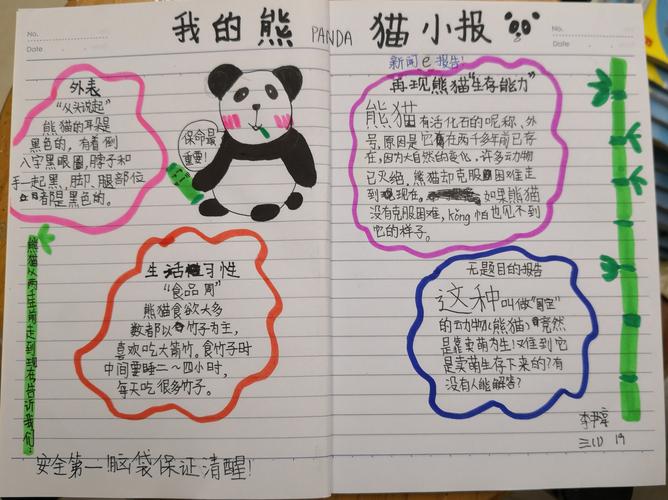 No.
Date
我的熊 PANDA 猫小报
外表
"从头说起"
熊猫的耳朵是
黑色的，有着倒
八字黑眼圈，脖子和
手一起黑，脚、腿部位
者都是黑色的。
保命最
重要！
熊猫从两千年前走到现在告诉我们：
生活习性
"食品周"
熊猫食欲大多
数都以竹子为主，
喜欢吃大箭竹。食竹子时
中间要睡二～四小时，
每天吃很多竹子。
安全第一脑袋保证清醒！
No.
Date
新闻e报告！
再现熊猫"生存能力"
熊猫有活化石的呢称、外
号，原因是它喜在两千多年前已存
在，因为大自然的变化，许多动物
已灭绝，熊猫却克服困难走
到现在。如果熊猫
没有克服困难，kǒng怕也见不到
它的样子。
无题目的报告
这种叫做"国宝"
的动物（熊猫）竟然
是靠卖萌为生！难到它
是卖萌生存下来的？有
没有人能解答？
三(1) 19